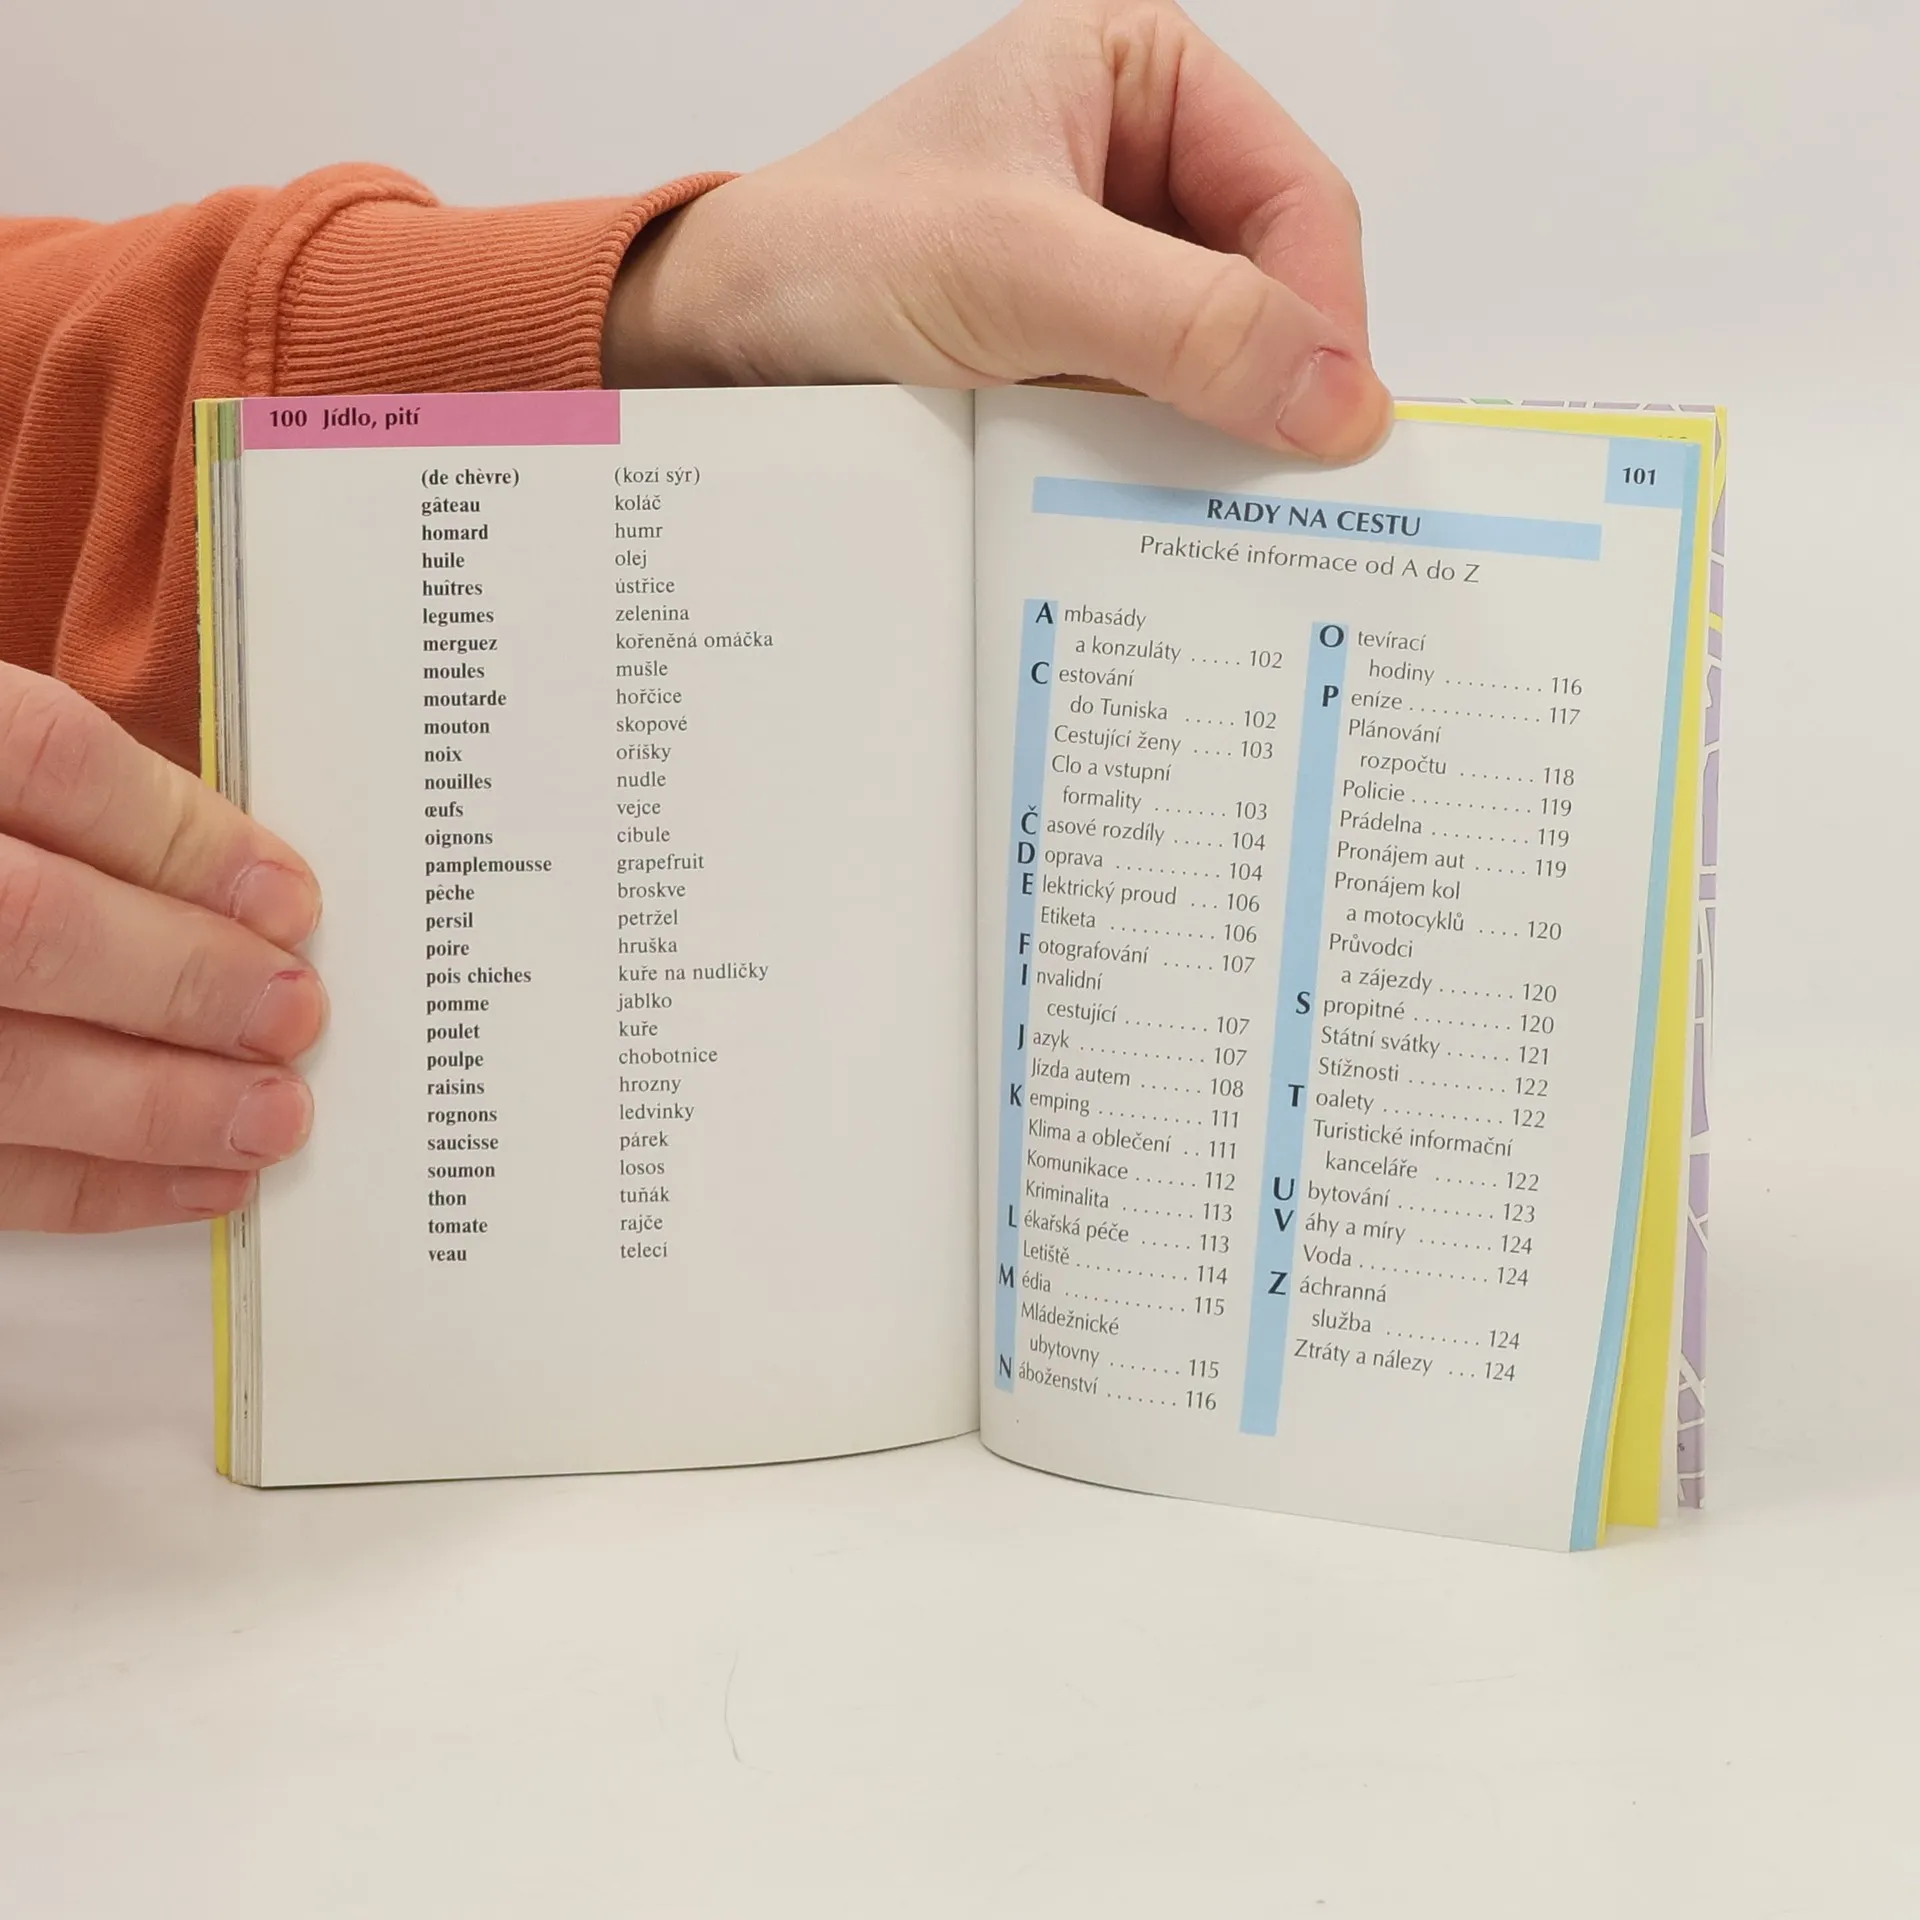 100 Jídlo, pití
(de chèvre) (kozí sýr)
gâteau koláč
homard humr
huile olej
huîtres ústřice
legumes zelenina
merguez kořeněná omáčka
moules mušle
moutarde hořčice
mouton skopové
noix oříšky
nouilles nudle
œufs vejce
oignons cibule
pamplemousse grapefruit
pêche broskve
persil petržel
poire hruška
pois chiches kuře na nudličky
pomme jablko
poulet kuře
poulpe chobotnice
raisins hrozny
rognons ledvinky
saucisse párek
soumon losos
thon tuňák
tomate rajče
veau telecí
101
RADY NA CESTU
Praktické informace od A do Z
Ambasády
a konzuláty ..... 102
Cestování
do Tuniska ..... 102
Cestující ženy .... 103
Clo a vstupní
formality ....... 103
Časové rozdíly ..... 104
Doprava .......... 104
Elektrický proud ... 106
Etiketa .......... 106
Fotografování ..... 107
Invalidní
cestující ........ 107
Jazyk ............ 107
Jízda autem ...... 108
Kemping ......... 111
Klima a oblečení .. 111
Komunikace ...... 112
Kriminalita ....... 113
Lékařská péče ..... 113
Letiště .......... 114
Média ............ 115
Mládežnické
ubytovny ....... 115
Náboženství ....... 116
Otevírací
hodiny ......... 116
Peníze ............ 117
Plánování
rozpočtu ....... 118
Policie ............ 119
Prádelna ......... 119
Pronájem aut ..... 119
Pronájem kol
a motocyklů .... 120
Průvodci
a zájezdy ....... 120
Spropitné ......... 120
Státní svátky ...... 121
Stížnosti ......... 122
Toalety ........... 122
Turistické informační
kanceláře ...... 122
Ubytování ......... 123
Váhy a míry ....... 124
Voda ............ 124
Záchranná
služba ......... 124
Ztráty a nálezy ... 124